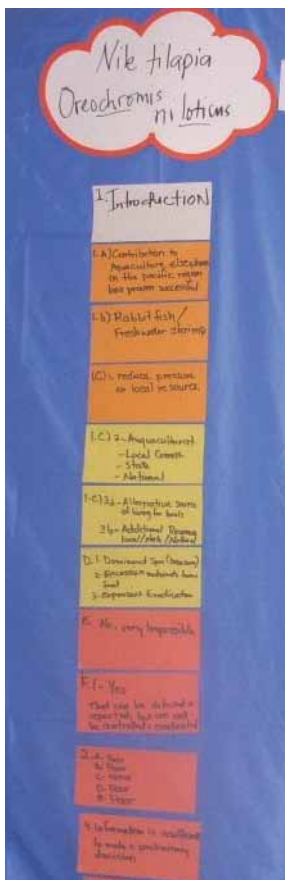 Nile tilapia
Oreochromis
niloticus
1. Introduction
1.A) Contribution to
Aquaculture, elsewhere
in the pacific region
has proven successful
1.b) Rabbit fish/
Freshwater shrimp
1(C) 1. reduce pressure
on local resource
1.C) 2-
- Local Comm
- State
- National
1-C) 3a- Alternative source
of living for locals
3b- Additional Revenue
local/state/National
D. 1. Dominant Spp
2.
3- Expensive Eradication
E. No, very Impossible
F.1- Yes
that can be
reported, but can not
be controlled + eradicated
2. A-
B- Poor
C- none
D- Poor
E- Poor
4. Information is insufficient
to make a preliminary
decision